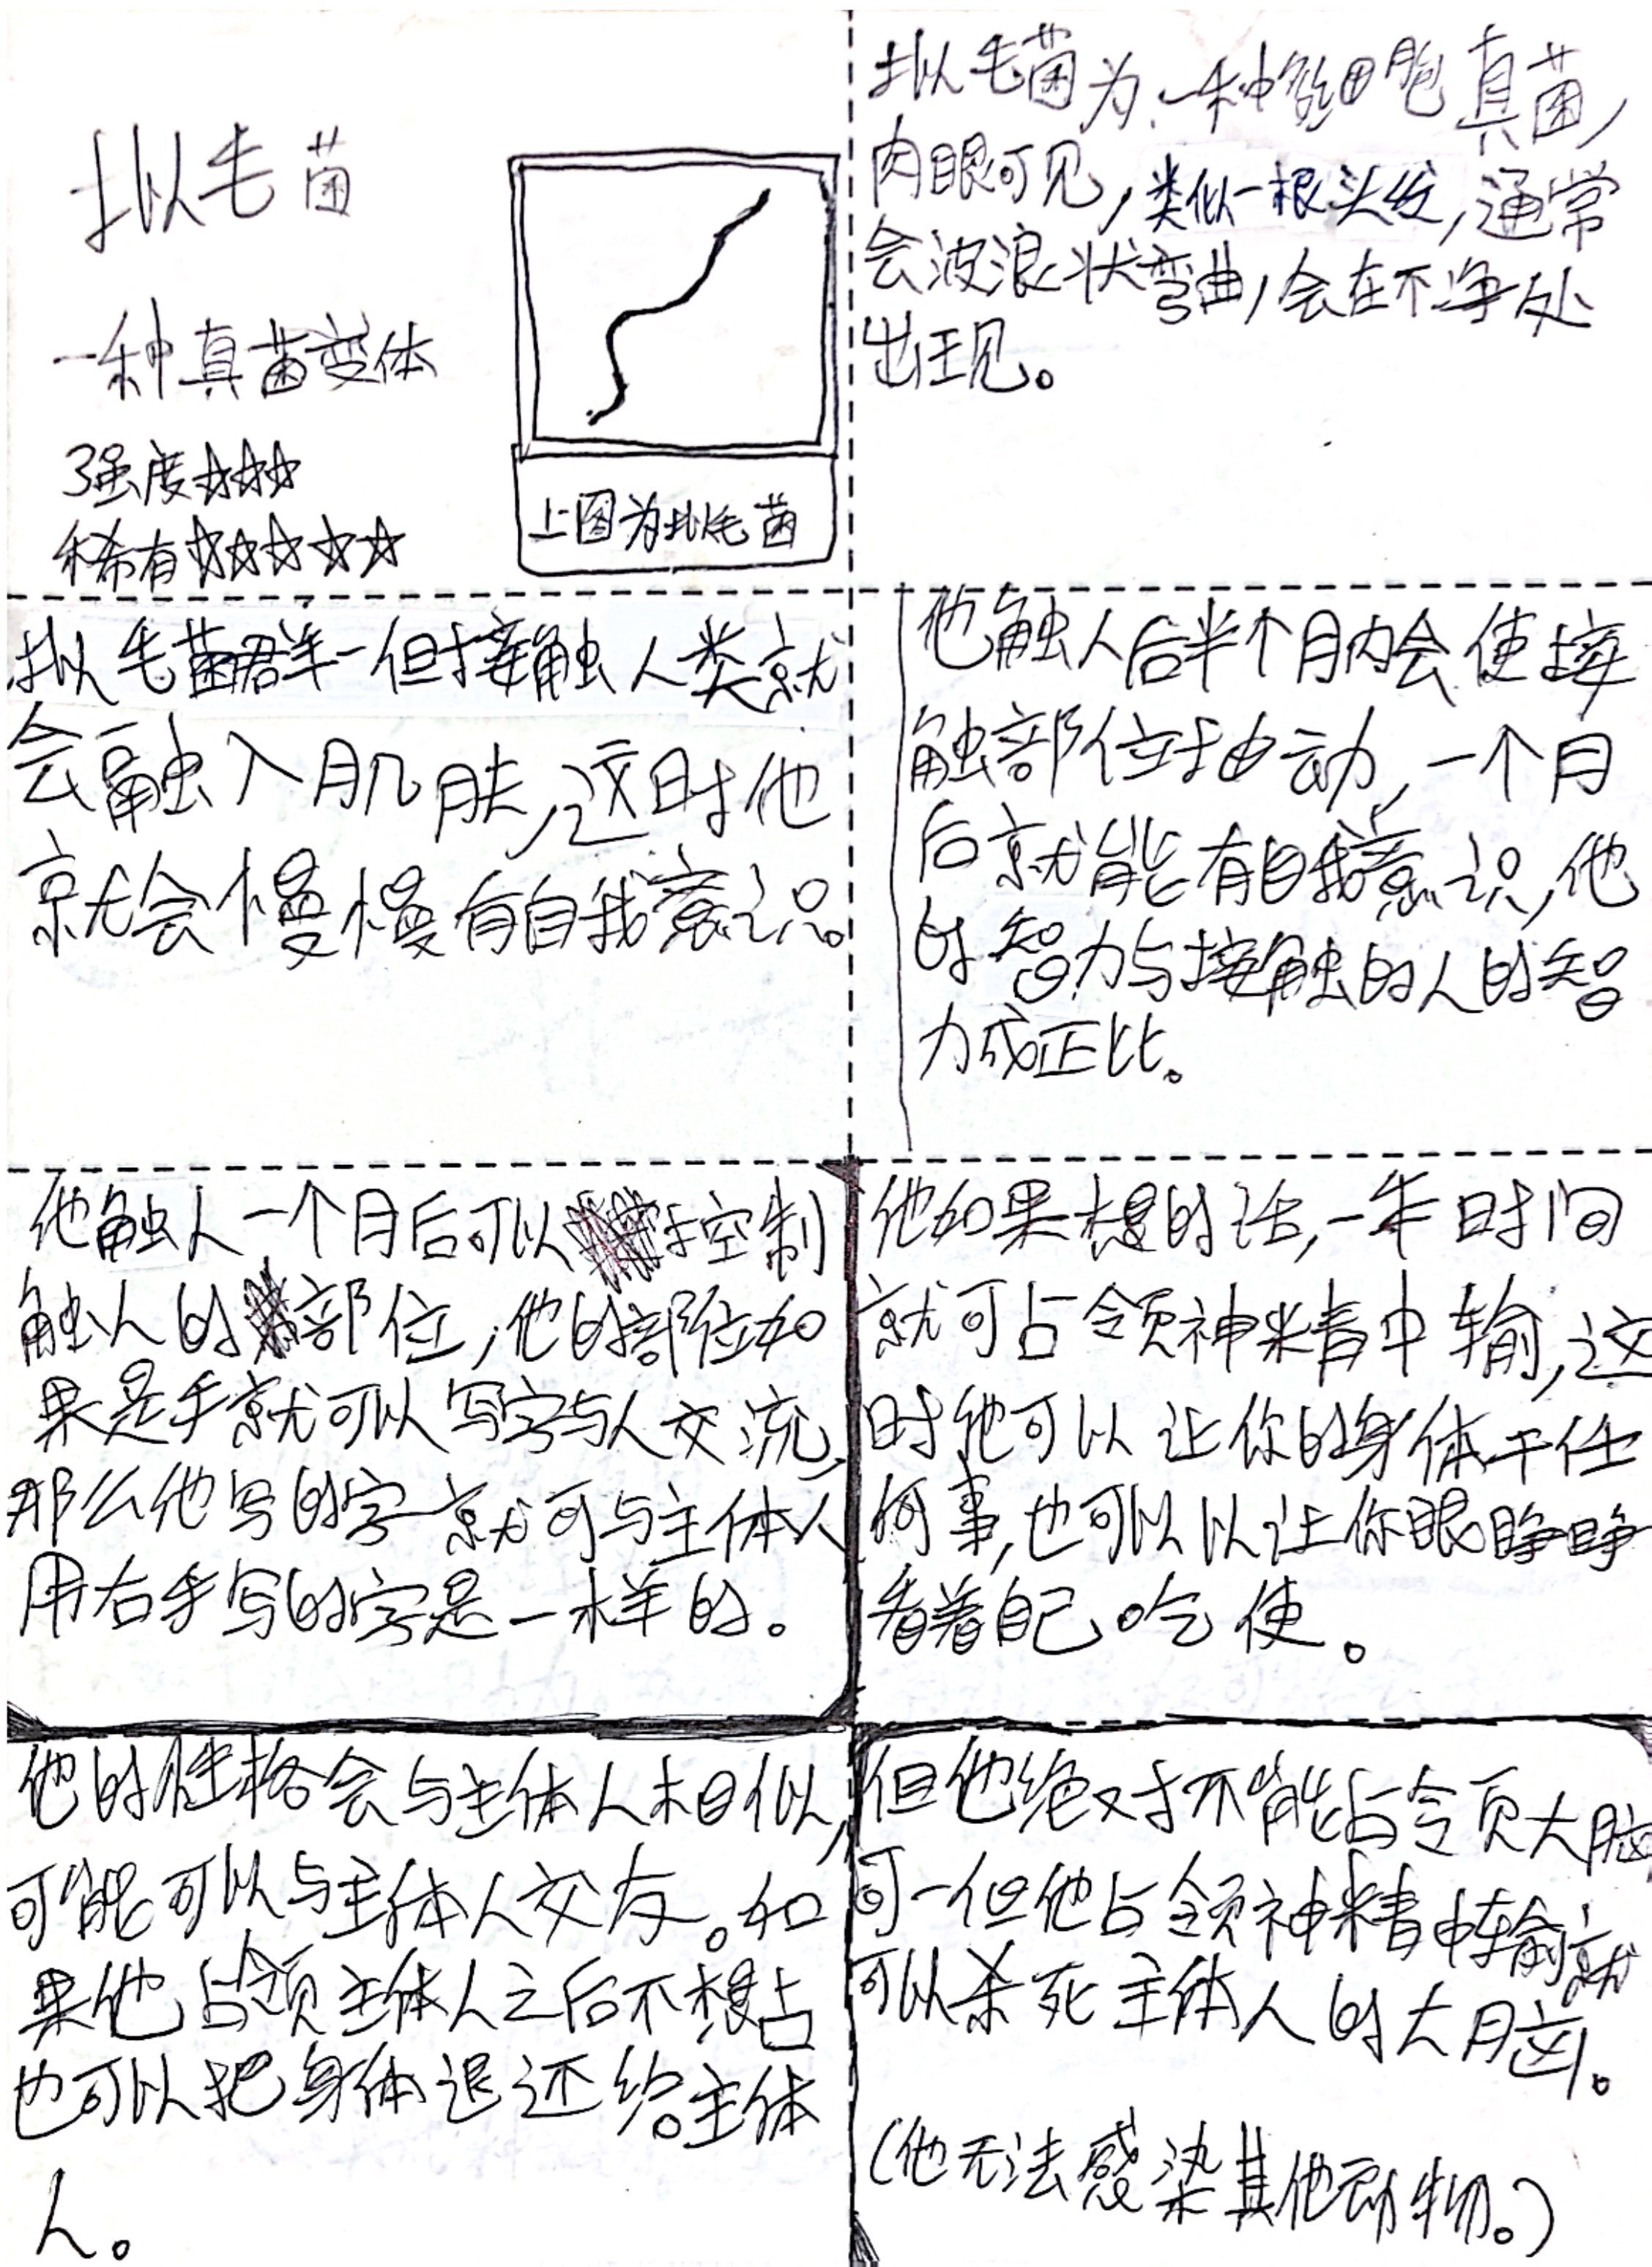 拟毛菌
一种真菌变体
强度☆☆☆
稀有☆☆☆☆☆
上图为拟毛菌
拟毛菌为一种细胞真菌,
肉眼可见,类似一根头发,通常
会波浪状弯曲,会在不净处
出现。
拟毛菌群一但接触人类就
会融入肌肤,这时他
就会慢慢有自我意识。
他触人后半个月内会使接
触部位抽动,一个月
后就能有自我意识,他
的智力与接触的人的智
力成正比。
他触人一个月后可以控制
触人的部位,他的部位如
果是手就可以写字与人交流,
那么他写的字就可与主体人
用右手写的字是一样的。
他如果想的话,一年时间
就可占领神精中输,这
时他可以让你的身体干任
何事,也可以以让你眼睁睁
看着自己吃使。
他的性格会与主体人相似,
可能可以与主体人交友。如
果他占领主体人之后不想占
也可以把身体退还给主体
人。
但他绝对不能占领大脑
可一但他占领神精中输就
可以杀死主体人的大脑。
(他无法感染其他动物。)